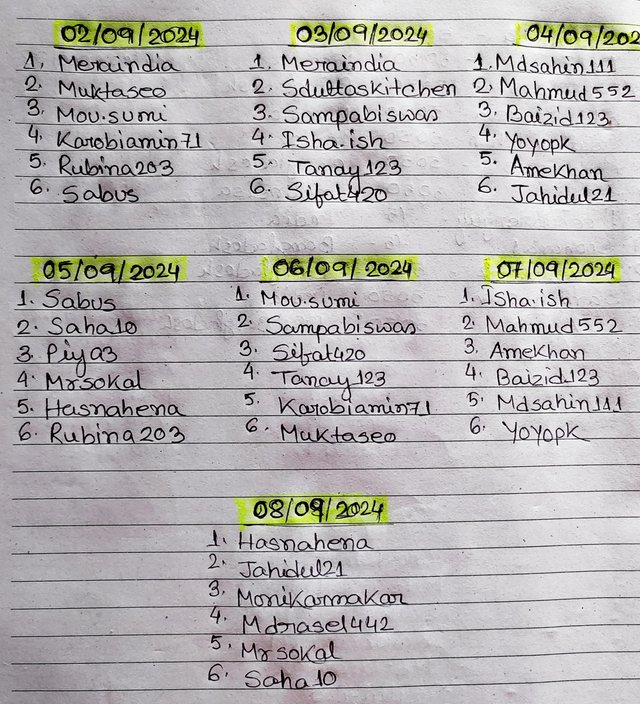 02/09/2024
1, Meraindia
2. Muktaseo
3. Mou.sumi
4. Karobiamin71
5. Rubina203
6. Sabus
03/09/2024
1. Meraindia
2. Sduttaskitchen
3. Sampabiswas
4. Isha.ish
5. Tanay123
6. Sifat420
04/09/202
1. Mdsahin111
2. Mahmud552
3. Baizid123
4. Yoyopk
5. AmeKhan
6. Jahidul21
05/09/2024
1. Sabus
2. Saha10
3. Piya3
4. Mrsokal
5. Hasnahena
6. Rubina203
06/09/2024
1. Mou.sumi
2. Sampabiswas
3. Sifat420
4. Tanay123
5. Karobiamin71
6. Muktaseo
07/09/2024
1. Isha.ish
2. Mahmud552
3. AmeKhan
4. Baizid123
5. Mdsahin111
6. Yoyopk
08/09/2024
1. Hasnahena
2. Jahidul21
3. Monikarmakar
4. Mdrasel442
5. Mrsokal
6. Saha10